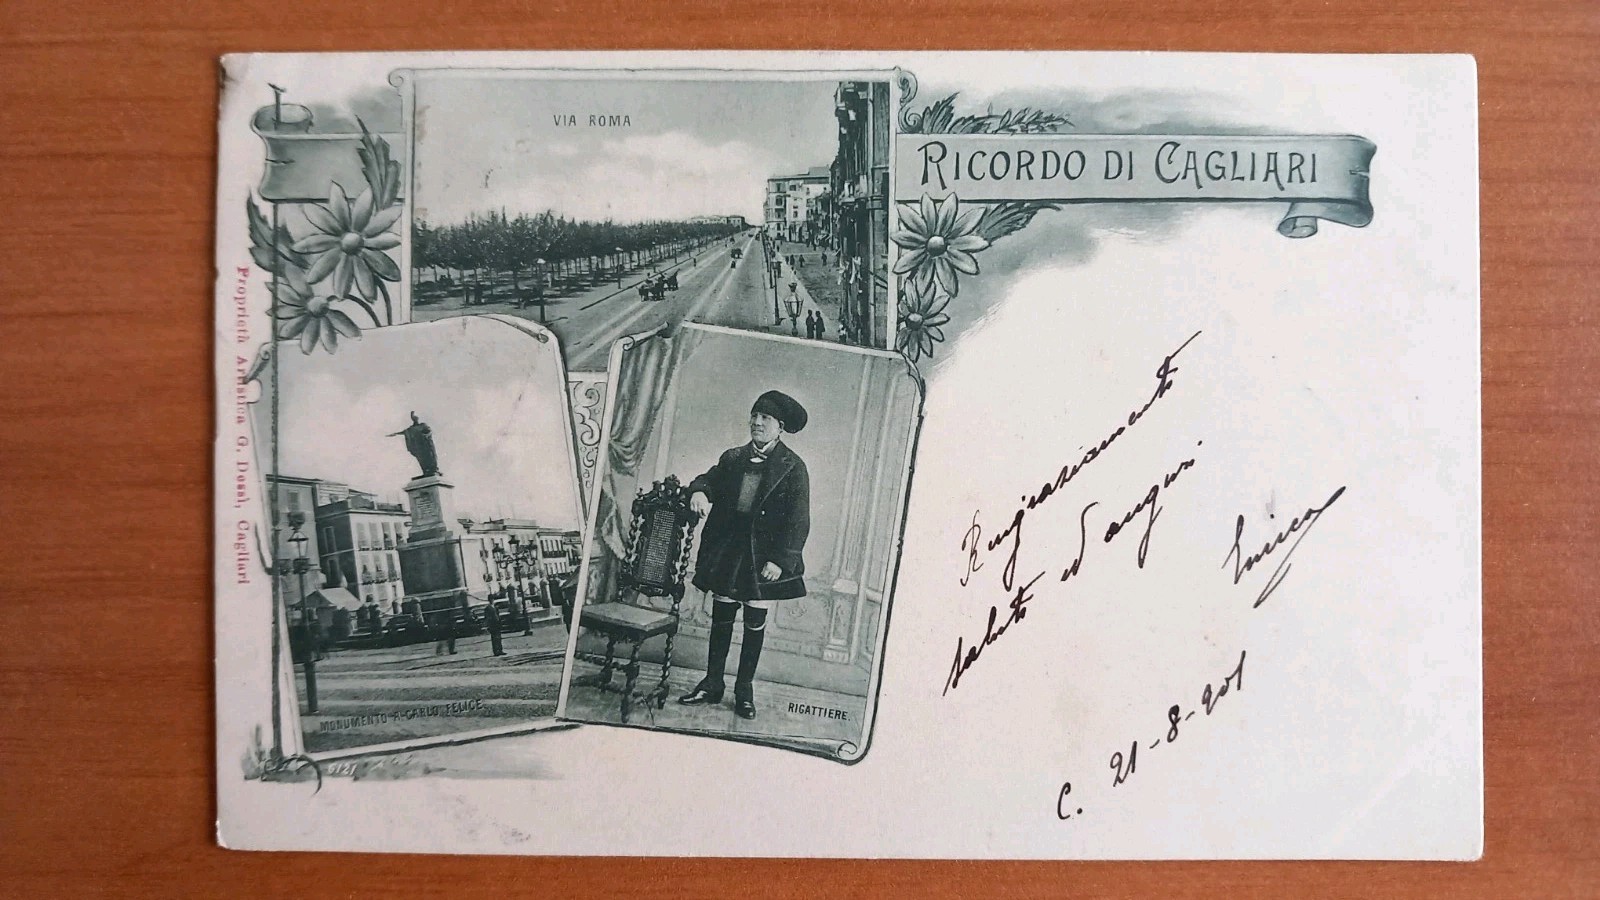 VIA ROMA
RICORDO DI CAGLIARI
Proprietà Artistica G. Dessì, Cagliari
MONUMENTO A CARLO FELICE
RIGATTIERE.
6121
Ringraziamento
saluti ed auguri
Enrica
C. 21-8-901